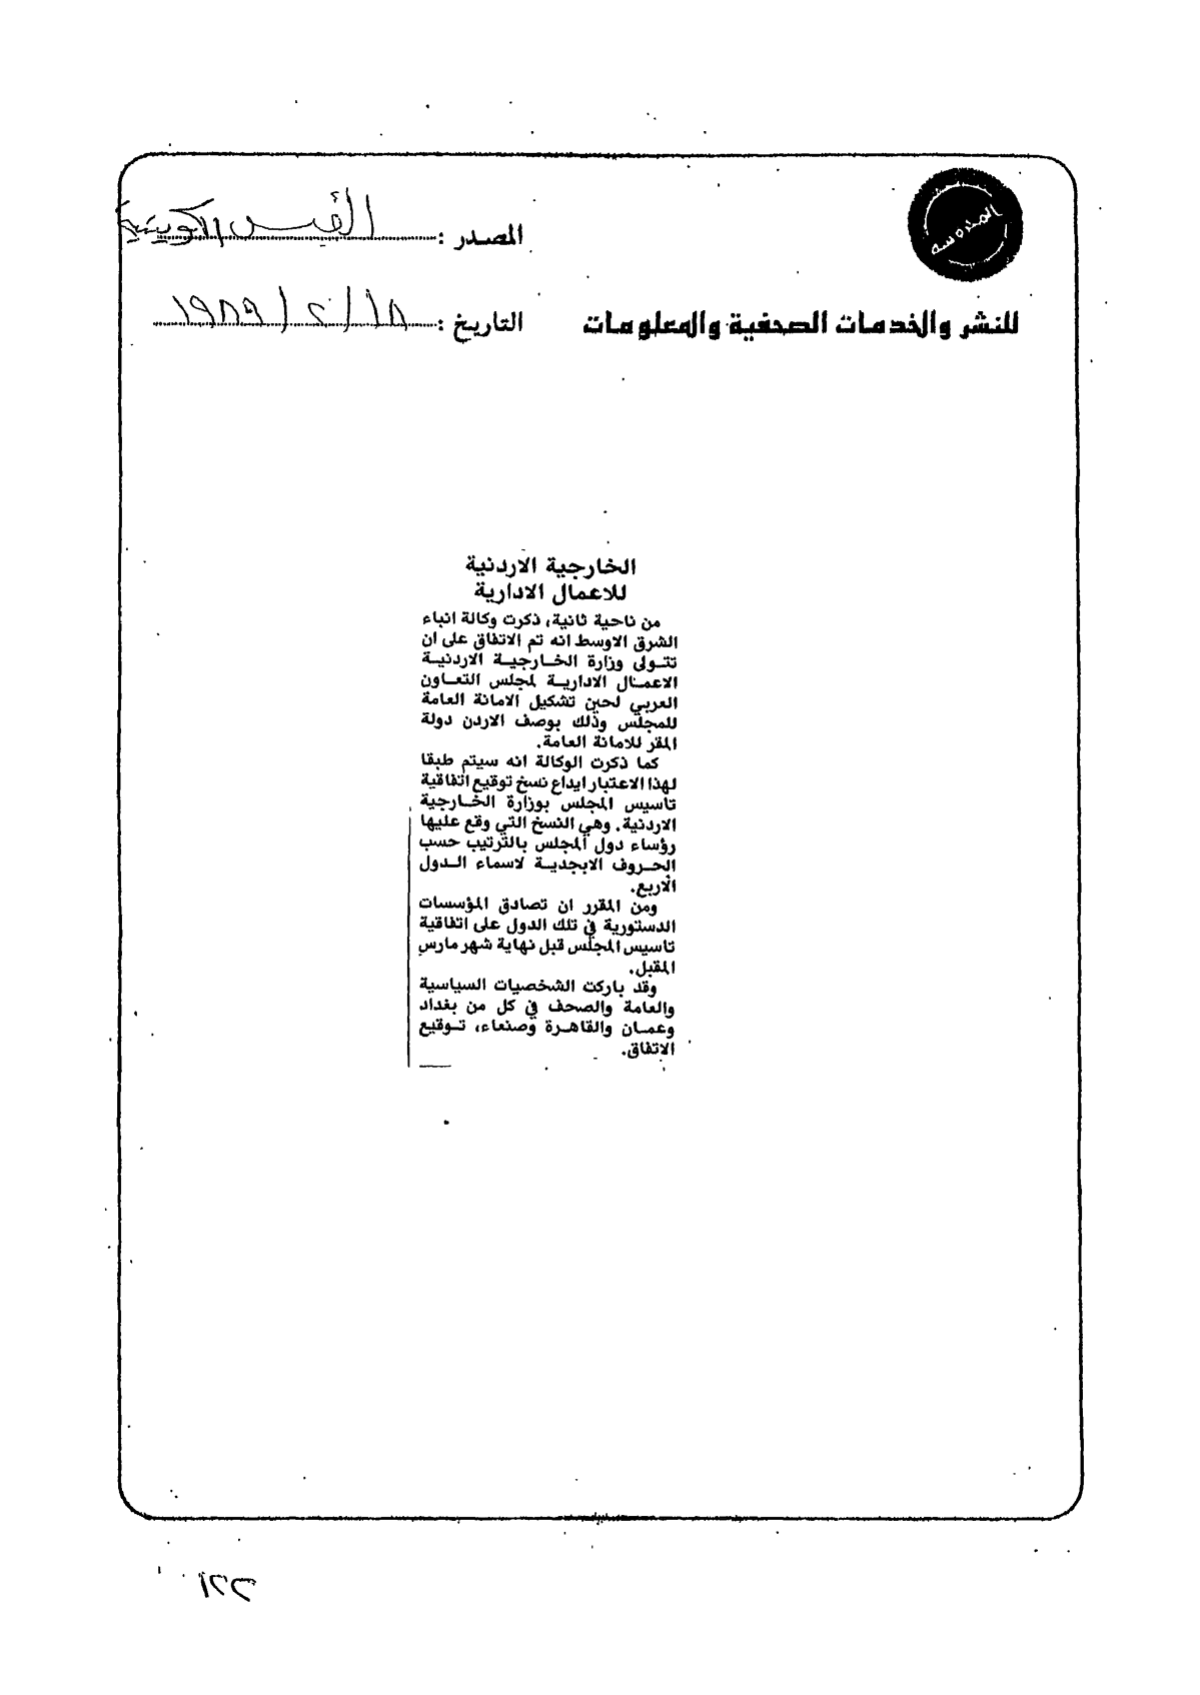 المصدر : القبس الكويتية
للنشر والخدمات الصحفية والمعلومات
التاريخ : ١٨ / ٢ / ١٩٨٩
الخارجية الاردنية
للاعمال الادارية
من ناحية ثانية، ذكرت وكالة انباء
الشرق الاوسط انه تم الاتفاق على ان
تتولى وزارة الخارجية الاردنية
الاعمال الادارية لمجلس التعاون
العربي لحين تشكيل الامانة العامة
للمجلس وذلك بوصف الاردن دولة
المقر للامانة العامة.
كما ذكرت الوكالة انه سيتم طبقا
لهذا الاعتبار ايداع نسخ توقيع اتفاقية
تاسيس المجلس بوزارة الخارجية
الاردنية. وهي النسخ التي وقع عليها
رؤساء دول المجلس بالترتيب حسب
الحروف الابجدية لاسماء الدول
الاربع.
ومن المقرر ان تصادق المؤسسات
الدستورية في تلك الدول على اتفاقية
تاسيس المجلس قبل نهاية شهر مارس
المقبل.
وقد باركت الشخصيات السياسية
والعامة والصحف في كل من بغداد
وعمان والقاهرة وصنعاء، توقيع
الاتفاق.